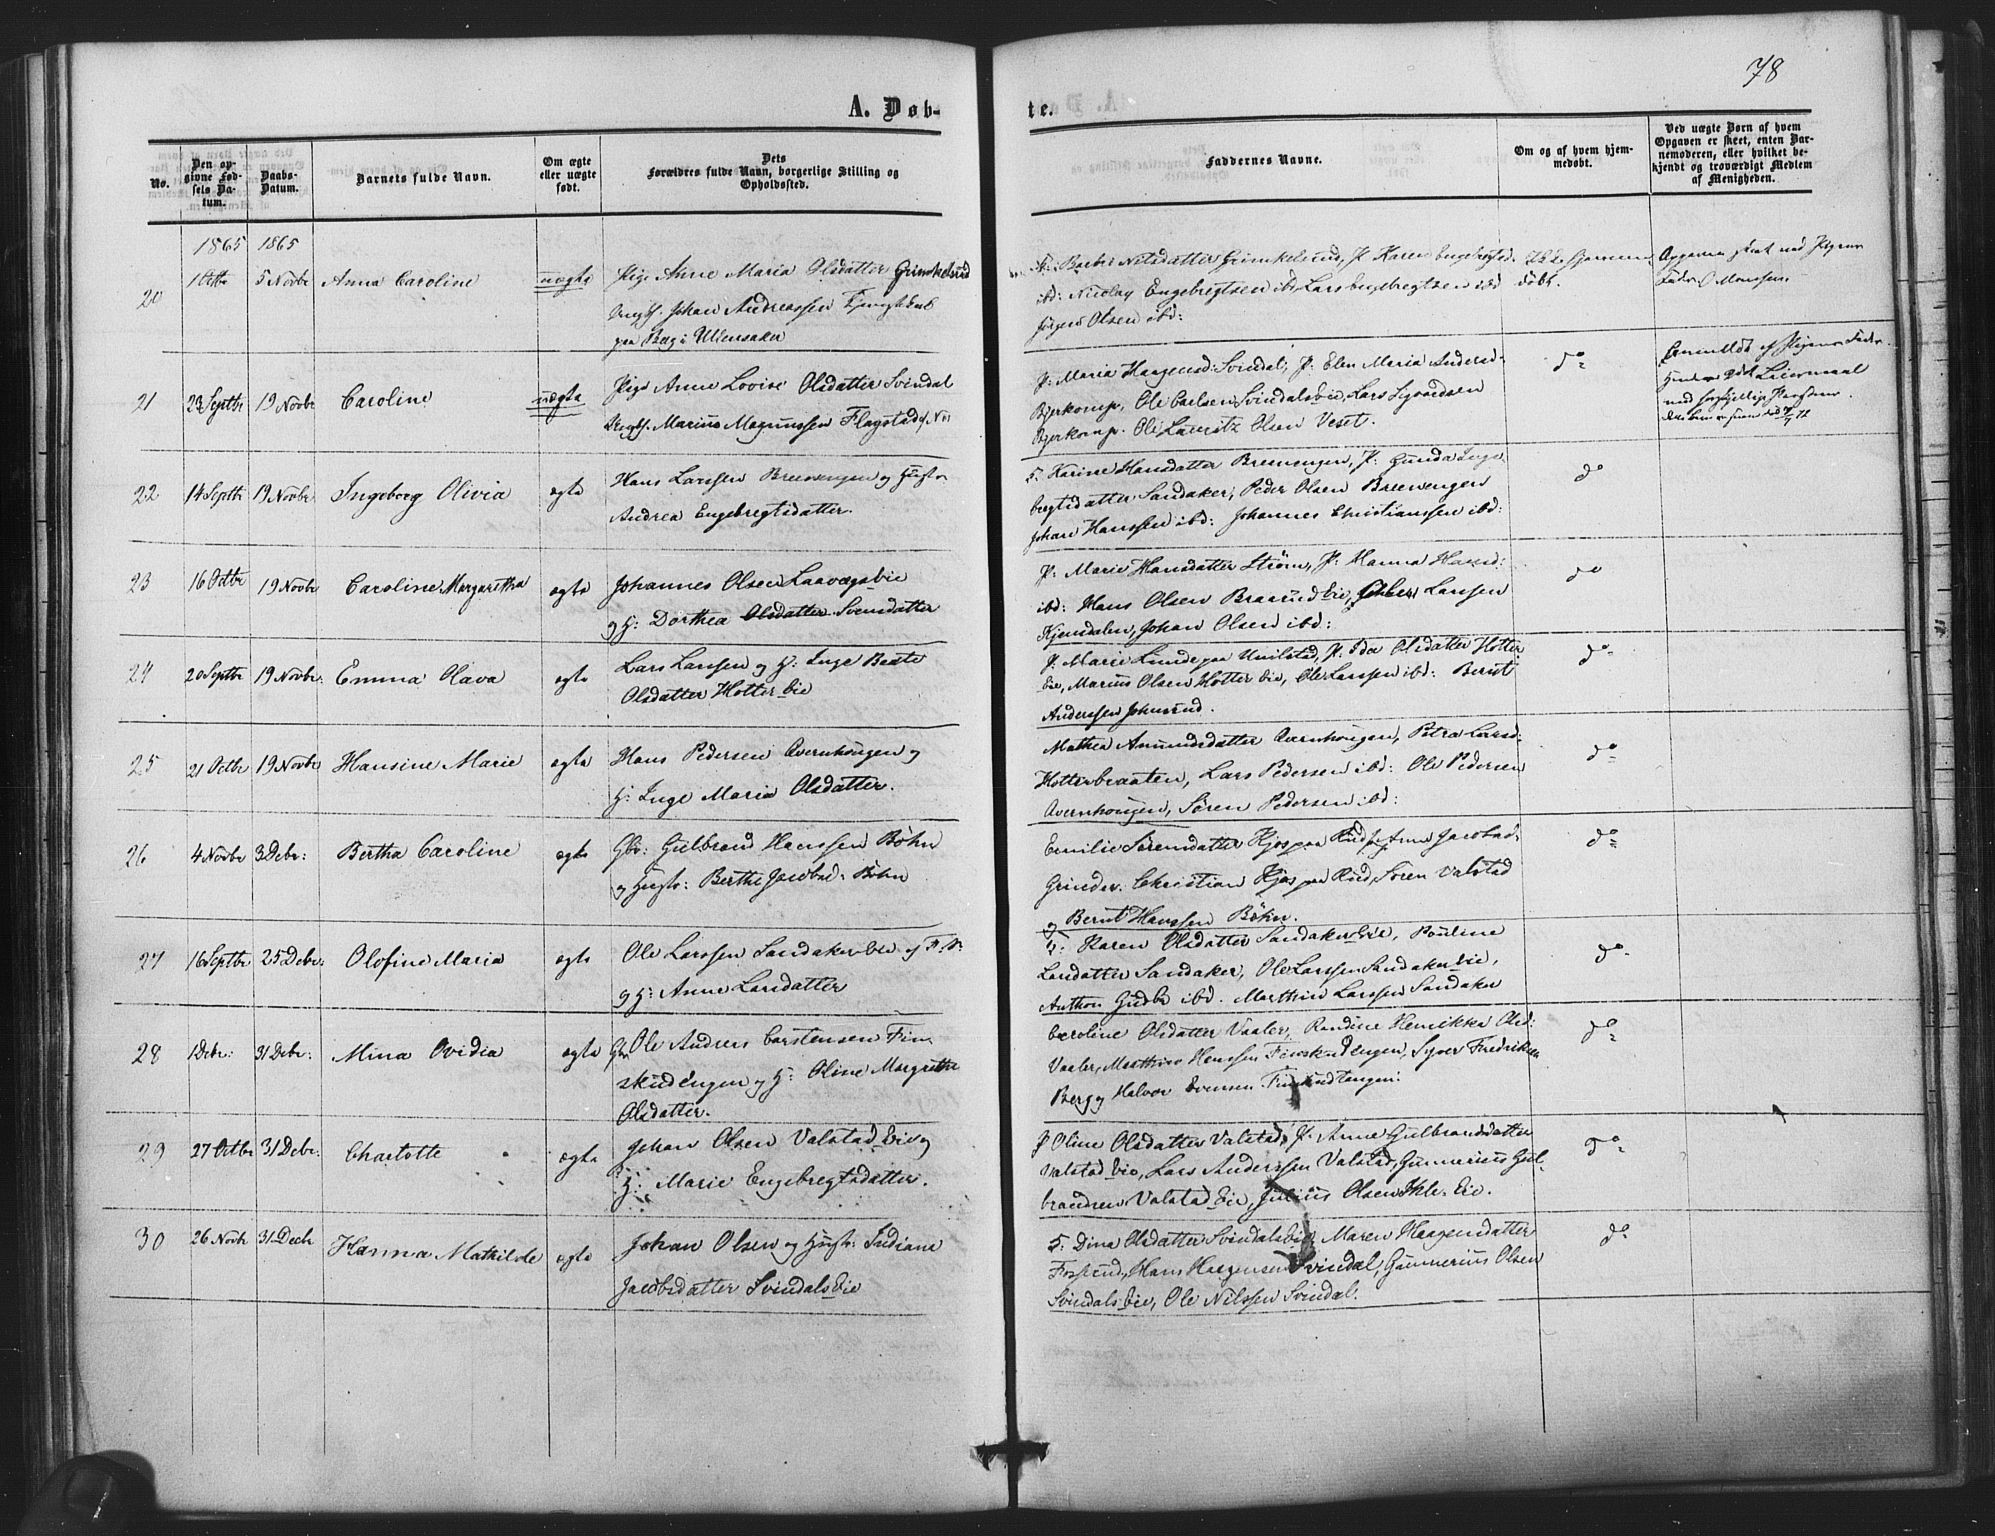 78
A. Døb-
te.
No.
Den op-
givne Fød-
sels Da-
tum.
Daabs-
Datum.
Barnets fulde Navn.
Om ægte
eller uægte
født.
Dets
Forældres fulde Navn, borgerlige Stilling og
Opholdssted.
Faddernes Navne.
Om og af hvem hjem-
medøbt.
Ved uægte Børn af hvem
Opgaven er skeet, enten Bar-
nemoderen, eller hvilket be-
kjendt og troværdigt Medlem
af Menigheden.
1865 1865
20 5 Novbr Anna Caroline uægte
Pige Anne Maria Olsdatter Grimkelsrud
Johan Andreassen
paa Berg i Ullensaker
Nilsdatter Grimkelsrud, P. Karen Engebregtsd.
ibd: Nicolay Engebregtsen ibd, Lars Engebregtsen ibd
Jørgen Olsen ibd:
døbt.
21 23 Septbr 19 Novbr Caroline uægte
Pige Anne Lovise Olsdatter Svindal
Ungk. Marius Magnussen Flagstad
P: Maria Haagensd: Svindal, P: Elen Maria Andersd.
Bjerkomp, Ole Carlsen Svindalseie, Lars Sigvardsen
Bjerkomp. Ole Lauritz Olsen Veset.
do
22 14 Septbr 19 Novbr Ingeborg Olivia ægte
Hans Larssen Breevengen og Hustr.
Andrea Engebregtsdatter.
Karine Hansdatter Breevengen, P: Gunda Inge-
bregtsdatter Sandaker, Peder Olsen Breevengen
Johan Hanssen ibd: Johannes Christianssen ibd:
do
23 16 Octbr 19 Novbr Caroline Margaretha ægte
Johannes Olsen Laavegseie
og H: Dorthea Olsdatter Svendsdatter
P: Marie Hansdatter Strøm, P: Hanna Hansd:
ibd: Hans Olsen Braarudeie, Larssen
Kjensdalen, Johan Olsen ibd:
do
24 20 Septbr 19 Novbr: Emma Olava ægte
Lars Larssen og H: Inge Beate
Olsdatter Hotter Eie
P: Marie Lunde paa P. Ida Olsdatter Hotter
Eie, Marius Olsen Hotter Eie, Ole Larssen ibd: Bernt
Anderssen Johnsrud.
do
25 21 Octbr 19 Novbr Hansine Marie ægte
Hans Pedersen Overnhougen og
H: Inge Maria Olsdatter.
Mathea Amundsdatter Overnhougen, Petra Larsd:
Hotterbraaten, Lars Pedersen ibd: Ole Pedersen
Overnhougen, Søren Pedersen ibd:
do
26 4 Novbr 3 Debr: Bertha Caroline ægte
Gbr: Gulbrand Hanssen Bøhn
og Hustr: Berthe Jacobsd: Bøhn
Emilie Sørensdatter Kjos paa Rud, P. Anne Jacobsd.
Grinder. Christian Kjos paa Rud, Søren Valstad
og Bernt Hanssen Bøhn.
do
27 16 Septbr 25 Debr: Olofine Maria ægte
Ole Larssen Sandaker Eie
og H: Anne Larsdatter
Karen Olsdatter Sandaker Eie, Pouline
Larsdatter Sandaker, Ole Larssen Sandaker Eie,
Anthon Gudbr ibd. Marthin Larssen Sandaker
do
28 1 Debr: 31 Debr: Mina Ovidia ægte
Gbr Ole Andreas Carstensen Fin-
skudengen og H: Oline Margrethe
Olsdatter.
Caroline Olsdatter Vaaler, Randine Henrikka Olsd:
Vaaler, Matthias Hanssen Finskudengen, Syver Fredriksen
Berg og Halvor Evensen Finskudtangen.
do
29 27 Octbr 31 Debr: Charlotte ægte
Johan Olsen Valstad Eie og
H: Marie Engebregtsdatter.
P Oline Olsdatter Valstad, P. Anne Gulbrandsdatter
Valstad Eie, Lars Anderssen Valstad, Gunnerius Gul-
brandsen Valstad Eie, Julius Olsen Eie.
do
30 26 Novbr 31 Decbr Hanna Mathilde ægte
Johan Olsen og Hustr: Indiane
Jacobsdatter Svindals Eie
Dina Olsdatter Svindals Eie, Maren Haagensdatter
Fosserud, Hans Haagensen Svindal, Gunnerius Olsen
Svindals Eie, Ole Nilssen Svindal.
do